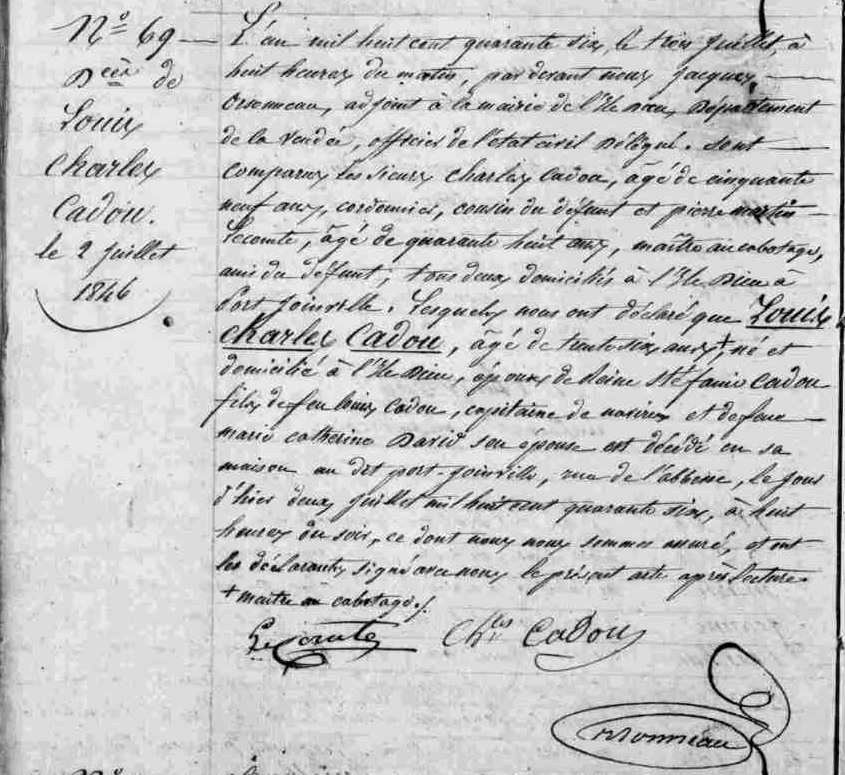 N° 69
Décès de
Louis
Charles
Cadou.
le 2 Juillet
1846
L'an mil huit cent quarante six, le trois Juillet, à
huit heures du matin, pardevant nous Jacques
Orsonneau, adjoint à la mairie de l'Ile Dieu, Département
de la Vendée, officier de l'état civil Délégué. Sont
comparus les sieurs Charles Cadou, âgé de cinquante
neuf ans, cordonnier, cousin du défunt et pierre martin
Lecomte, âgé de quarante huit ans, maître au cabotage,
ami du défunt; tous deux domiciliés à l'Ile Dieu à
Port Joinville. Lesquels nous ont déclaré que Louis
Charles Cadou, âgé de trente six ans +, né et
domicilié à l'Ile Dieu, époux de Reine Stéfanie Cadou
fils de feu Louis Cadou, capitaine de navires et de feue
marie catherine David son épouse est décédé en sa
maison au dit port Joinville, rue de l'abbesse, le jour
d'hier deux Juillet mil huit cent quarante six, à huit
heures du soir, ce dont nous nous sommes assuré, et ont
les déclarants signé avec nous le présent acte après lecture
+ maître au cabotage /.
Lecomte
Ch.les Cadou
Orsonneau